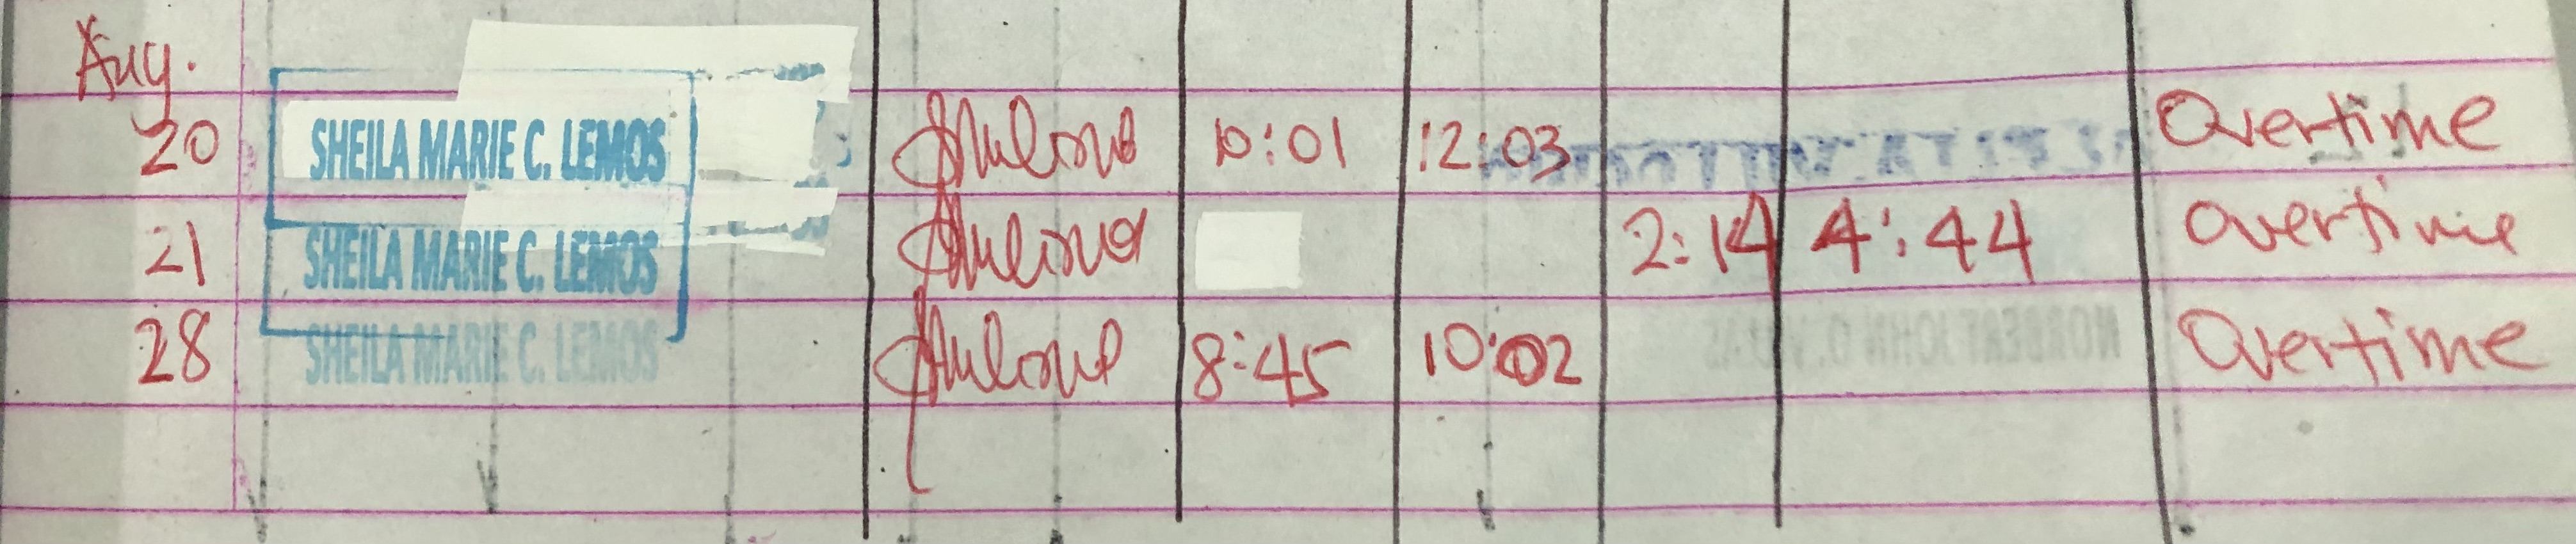 Aug.
20 SHEILA MARIE C. LEMOS 10:01 12:03 Overtime
21 SHEILA MARIE C. LEMOS 2:14 4:44 overtime
28 SHEILA MARIE C. LEMOS 8:45 10:02 Overtime